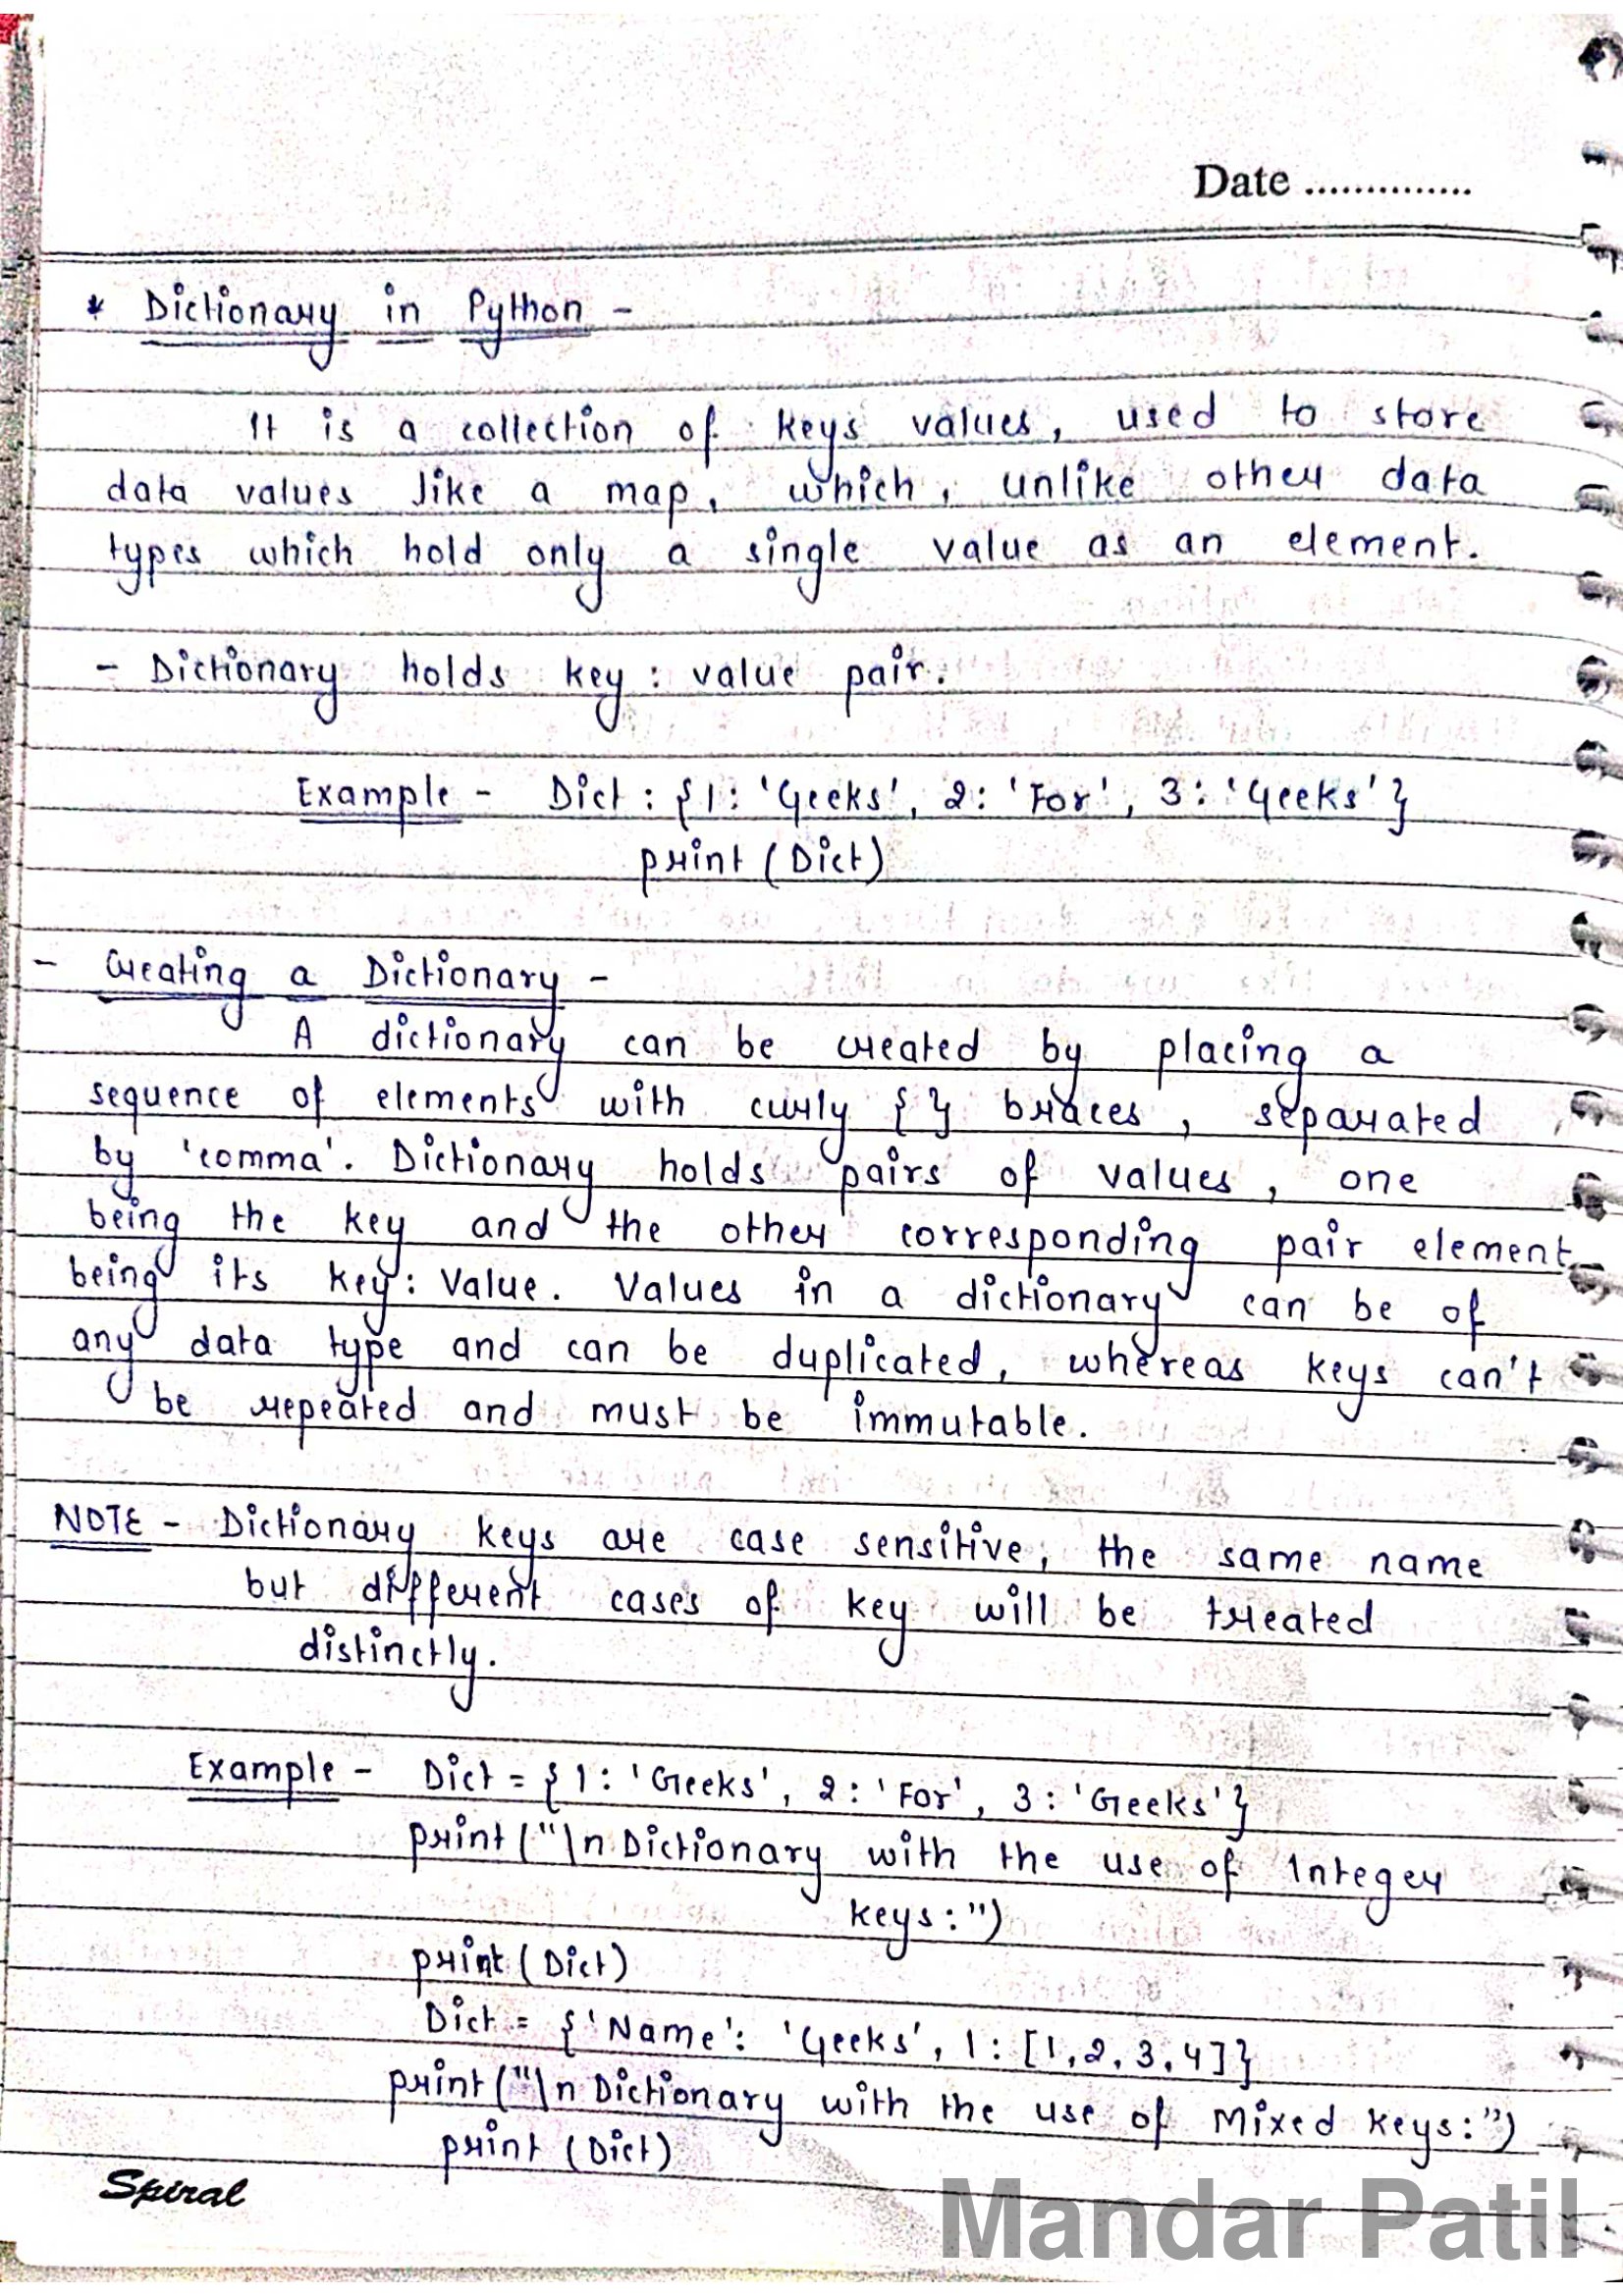 Date ..............
* Dictionary in Python -
It is a collection of keys values, used to store
data values like a map, which, unlike other data
types which hold only a single value as an element.
- Dictionary holds key : value pair.
Example - Dict : {1: 'Geeks', 2: 'For', 3: 'Geeks'}
print (Dict)
- Creating a Dictionary -
A dictionary can be created by placing a
sequence of elements with curly { } braces, separated
by 'comma'. Dictionary holds pairs of values, one
being the key and the other corresponding pair element
being its key: value. Values in a dictionary can be of
any data type and can be duplicated, whereas keys can't
be repeated and must be immutable.
NOTE - Dictionary keys are case sensitive, the same name
but different cases of key will be treated
distinctly.
Example - Dict = {1: 'Geeks', 2: 'For', 3: 'Geeks'}
print ("\n Dictionary with the use of Integer
keys:")
print (Dict)
Dict = {'Name': 'Geeks', 1: [1,2,3,4]}
print ("\n Dictionary with the use of Mixed keys:")
print (Dict)
Spiral
Mandar Patil